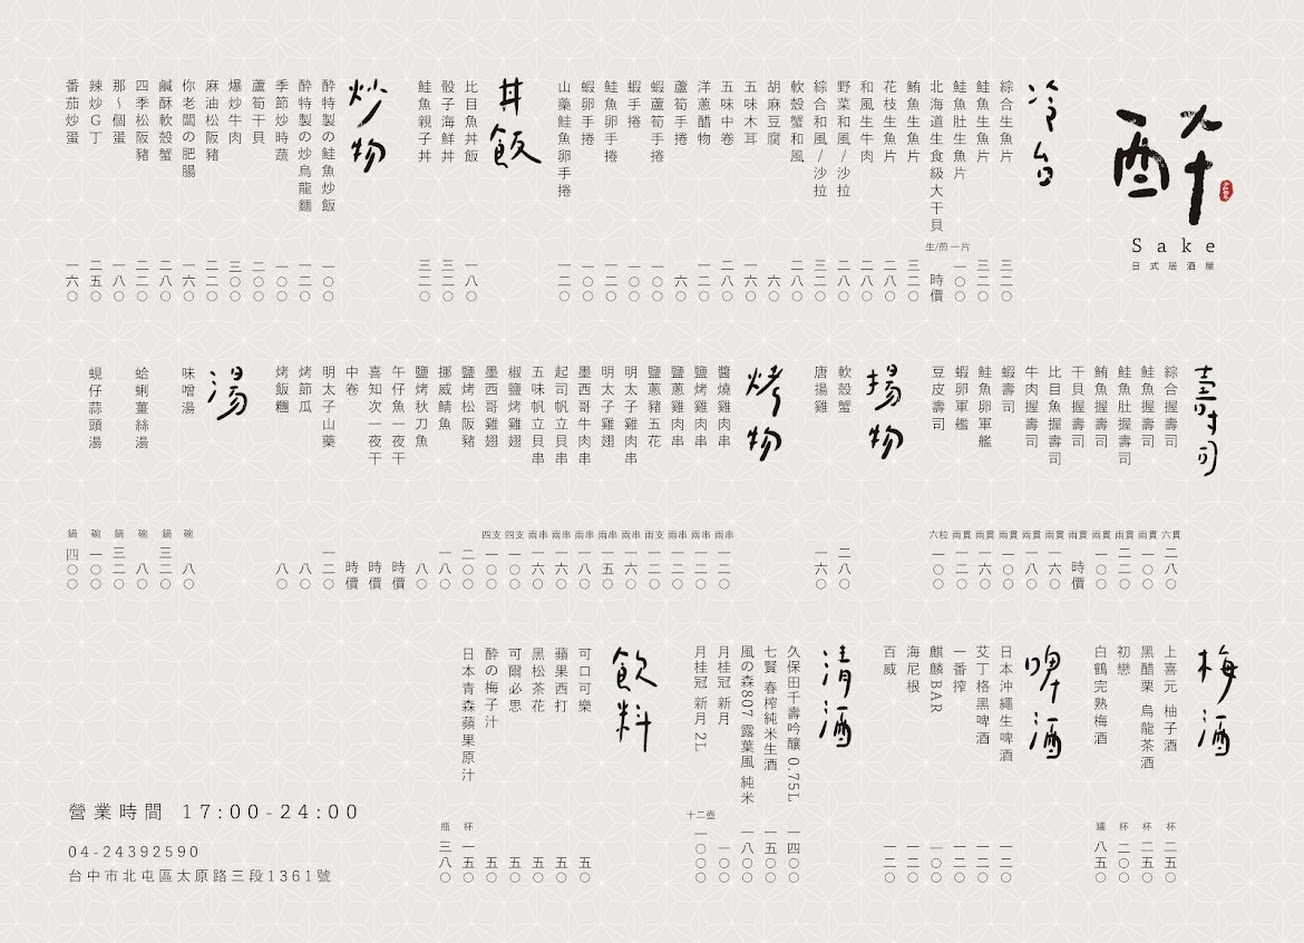 醉
Sake
日式居酒屋
冷台
綜合生魚片 三二〇
鮭魚生魚片 三二〇
鮭魚肚生魚片 一〇〇
北海道生食級大干貝 生/煎 一片 時價
鮪魚生魚片 三二〇
花枝生魚片 二八〇
和風生牛肉 二八〇
野菜和風/沙拉 二八〇
綜合和風/沙拉 三二〇
軟殼蟹和風 二八〇
胡麻豆腐 六〇
五味木耳 一六〇
五味中卷 一八〇
洋蔥醋物 一二〇
蘆筍手捲 六〇
蝦蘆筍手捲 一〇〇
蝦手捲 一〇〇
鮭魚卵手捲 一二〇
蝦卵手捲 一〇〇
山藥鮭魚卵手捲 一二〇
丼飯
比目魚丼飯 一八〇
骰子海鮮丼 三二〇
鮭魚親子丼 三二〇
炒物
醉特製の鮭魚炒飯 一〇〇
醉特製の炒烏龍麵 一〇〇
季節炒時蔬 一〇〇
蘆筍干貝 二〇〇
爆炒牛肉 三〇〇
麻油松阪豬 二二〇
你老闆の肥腸 一六〇
鹹酥軟殼蟹 二八〇
四季松阪豬 二二〇
那～個蛋 一八〇
辣炒G丁 二五〇
番茄炒蛋 一六〇
壽司
綜合握壽司 六貫 二八〇
鮭魚握壽司 兩貫 一〇〇
鮭魚肚握壽司 兩貫 二二〇
鮪魚握壽司 兩貫 一〇〇
干貝握壽司 兩貫 時價
比目魚握壽司 兩貫 一六〇
牛肉握壽司 兩貫 一八〇
蝦壽司 兩貫 一〇〇
鮭魚卵軍艦 兩貫 一六〇
蝦卵軍艦 兩貫 一二〇
豆皮壽司 六粒 一〇〇
揚物
軟殼蟹 二八〇
唐揚雞 一六〇
烤物
醬燒雞肉串 兩串 一二〇
鹽烤雞肉串 兩串 一二〇
鹽蔥雞肉串 兩串 一二〇
鹽蔥豬五花 兩支 一二〇
明太子雞肉串 兩串 一六〇
明太子雞翅 兩串 一五〇
墨西哥牛肉串 兩串 一八〇
起司帆立貝串 兩串 一六〇
五味帆立貝串 兩串 一六〇
椒鹽烤雞翅 四支 一〇〇
墨西哥雞翅 四支 一〇〇
鹽烤松阪豬 二〇〇
挪威鯖魚 一八〇
鹽烤秋刀魚 八〇
午仔魚一夜干 時價
喜知次一夜干 時價
中卷 時價
明太子山藥 一二〇
烤節瓜 八〇
烤飯糰 八〇
湯
味噌湯 碗 八〇 鍋 三二〇
蛤蜊薑絲湯 碗 八〇 鍋 三二〇
蜆仔蒜頭湯 碗 一〇〇 鍋 四〇〇
梅酒
上喜元 柚子酒 杯 二五〇
黑醋栗 烏龍茶酒 杯 二五〇
初戀 杯 二〇〇
白鶴完熟梅酒 罐 八五〇
啤酒
日本沖繩生啤酒 一二〇
艾丁格黑啤酒 一二〇
一番搾 一二〇
麒麟BAR 一〇〇
海尼根 一二〇
百威 一二〇
清酒
久保田千壽吟釀 0.75L 一四〇〇
七賢 春榨純米生酒 一五〇〇
風の森807 露葉風 純米 一八〇〇
月桂冠 新月 一〇〇
月桂冠 新月 2L 十二壺 一〇〇〇
飲料
可口可樂 五〇
蘋果西打 五〇
黑松茶花 五〇
可爾必思 五〇
醉の梅子汁 五〇
日本青森蘋果原汁 杯 一五〇 瓶 三八〇
營業時間 17:00-24:00
04-24392590
台中市北屯區太原路三段1361號